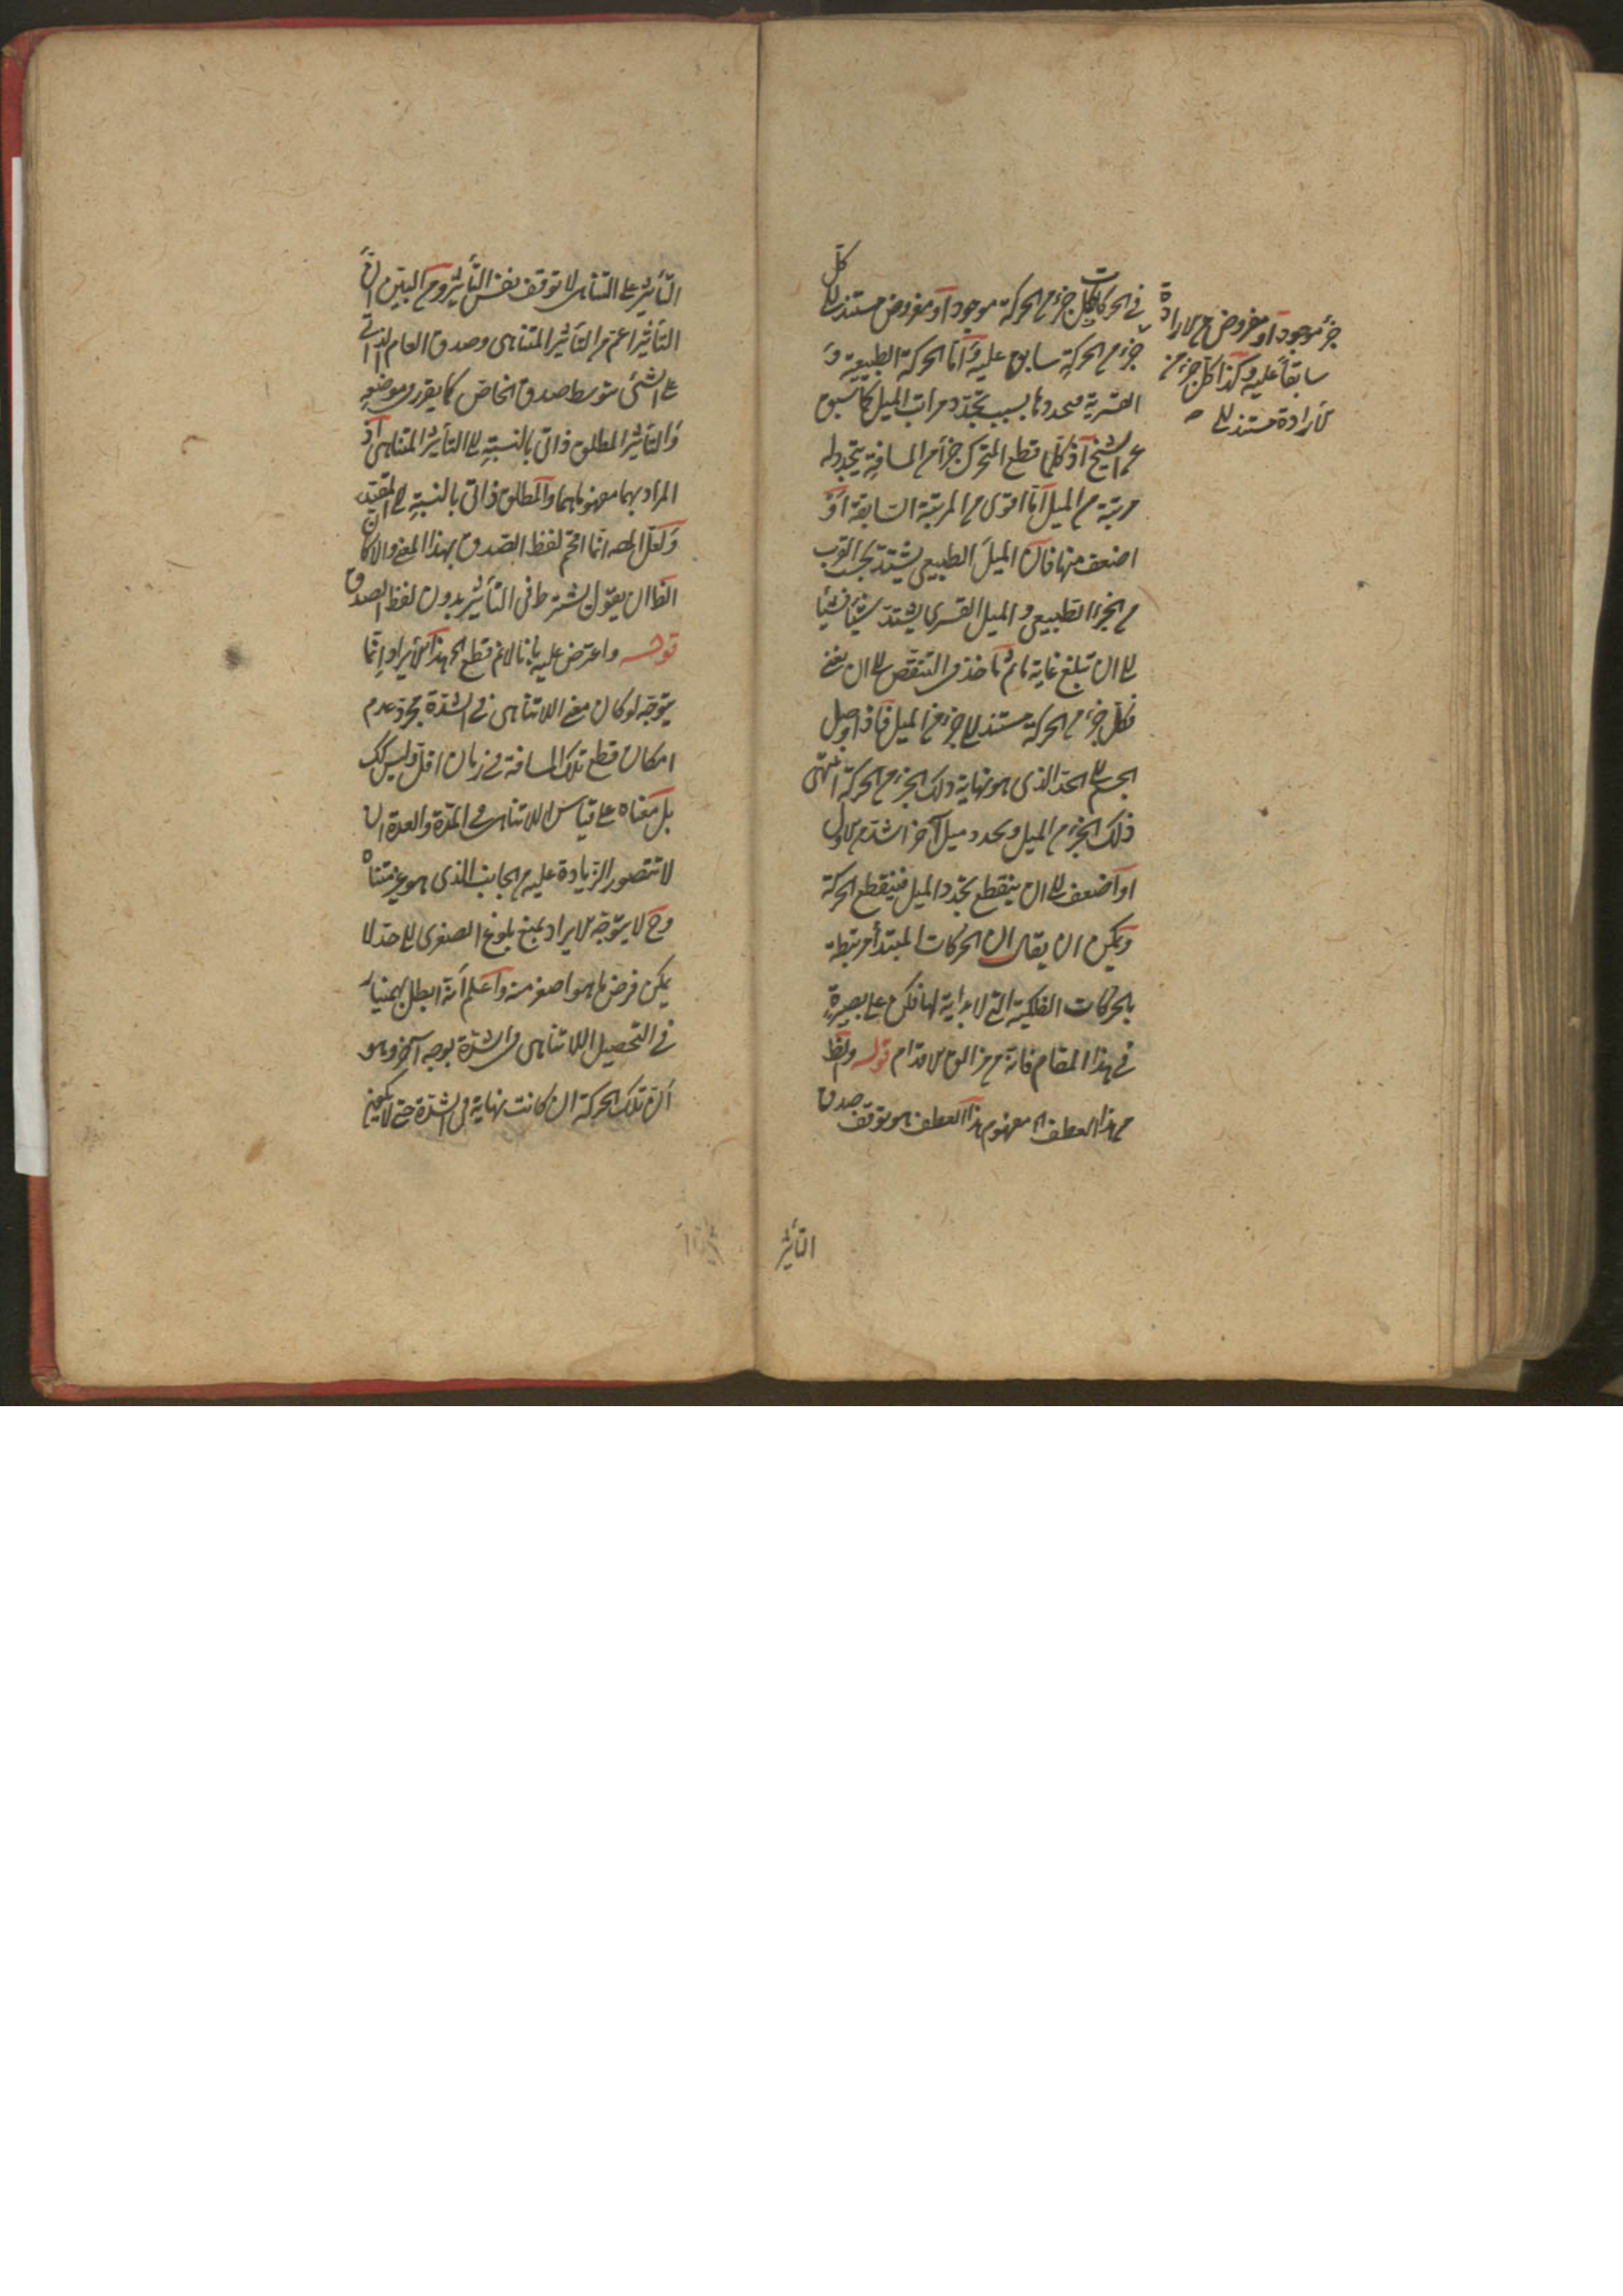 في الحركات فكل جزء من الحركة موجود أو مفروض مستند إلى كل
جزء من الحركة سابق عليه وأما الحركة الطبيعية و
القسرية فتجددها بسبب تجدد مراتب الميل كما سبق
عن الشيخ إذ كلما قطع المتحرك جزأ من المسافة يتجدد له
مرتبة من الميل إما اقوى من المرتبة السابقة أو
اضعف منها فان الميل الطبيعي يشتد بحسب القرب
من الحيز الطبيعي والميل القسري يشتد شيئا فشيئا
إلى ان تبلغ غاية ما ثم تأخذ في التنقص إلى ان يفنى
فكل جزء من الحركة مستند إلى جزء من الميل فاذا وصل
الجسم إلى الحد الذي هو نهاية ذلك الجزء من الحركة انتهى
ذلك الجزء من الميل وتجدد ميل آخر اشد من الاول
أو أضعف إلى ان ينقطع تجدد الميل فينقطع الحركة
ويمكن ان يقال ان الحركات المبتدأة مرتبطة
بالحركات الفلكية التي لا بداية لها فكن على بصيرة
في هذا المقام فانه من مزالق الاقدام قوله ولفظ
من هذا العطف اه مفهوم هذا العطف هو توقف صدق
التأثير
جزء موجود أو مفروض من الارادة
سابقا عليه وكذا كل جزء من
الارادة مستند إلى
التأثير على التناهي لا توقف نفس التأثير ومن البين ان
التأثير اعم من التأثير المتناهي وصدق العام الذاتي
على الشئ بتوسط صدق الخاص كما يقرر في موضعه
والتأثير المطلق ذاتي بالنسبة إلى التأثير المتناهي إذ
المراد بهما مفهوماهما والمطلق ذاتي بالنسبة إلى المقيد
ولعل المصـ انما اقحم لفظ الصدق بهذا المعنى والا كان
الظا ان يقول يشترط في التأثير بدون لفظ الصدق
قوله واعترض عليه بانا لانم قطع اه هذا الايراد انما
يتوجه لو كان معنى اللاتناهي في الشدة مجرد عدم
امكان قطع تلك المسافة في زمان اقل وليس كك
بل معناه على قياس اللاتناهي في المدة والعدة ان
لا تتصور الزيادة عليه من الجانب الذي هو غير متناه
وح لا يتوجه الايراد بمنع بلوغ الصغرى إلى حد لا
يمكن فرض ما هو اصغر منه واعلم أنه ابطل بهمنيار
في التحصيل اللاتناهي في الشدة بوجه آخر وهو
ان تلك الحركة ان كانت نهاية في الشدة حتى لا يمكن